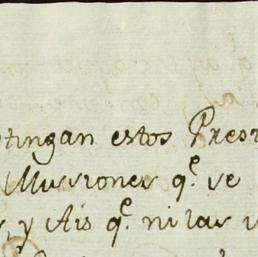 tingan estos Pres
Missiones q.e se
y Ais q.e ni las